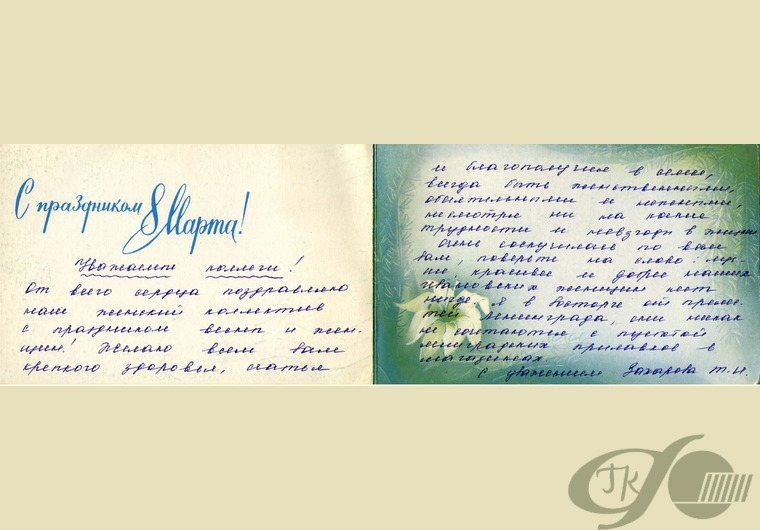 С праздником 8 Марта!
Уважаемые коллеги!
От всего сердца поздравляю
наш женский коллектив
с праздником весны и жен-
щин! Желаю всем вам
крепкого здоровья, счастья
и благополучия в семье,
всегда быть женственными,
обаятельными и
несмотря ни на какие
трудности и невзгоды в жизни.
Очень соскучилась по всем
вам, поверьте на слово:
красивее и добрее наших
ивановских женщин нет
нигде. Я в восторге от
Ленинграда, они никак
не сочетаются с пустотой
ленинградских прилавков в
магазинах
С уважением Захарова Т.И.
ГК